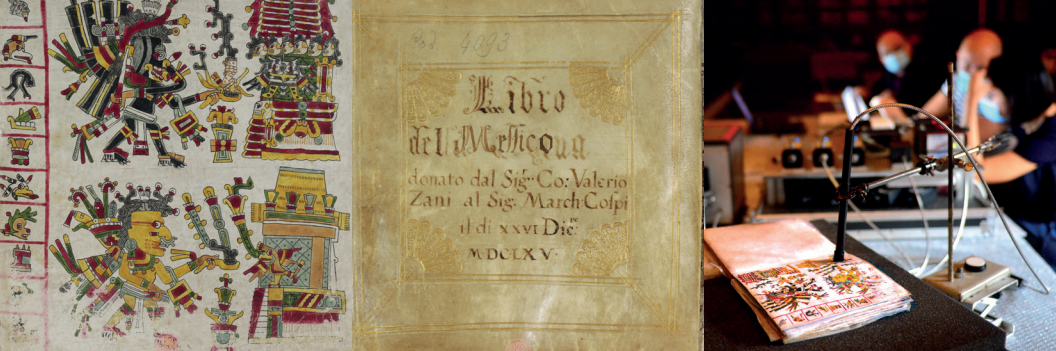 Cod. 4093
Libro
del Messicona
donato dal Sig.r Co: Valerio
Zani al Sig. March. Cospi
il di XXVI Dic.re
MDCLXV.